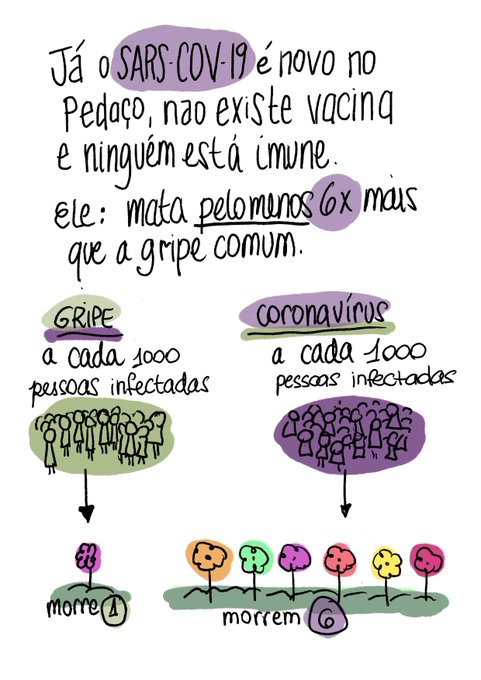 Já o SARS-COV-19 é novo no
Pedaço, nao existe vacina
e ninguém está imune.
Ele: mata pelo menos 6x mais
que a gripe comum.
GRIPE
a cada 1000
pessoas infectadas
morre 1
coronavírus
a cada 1000
pessoas infectadas
morrem 6